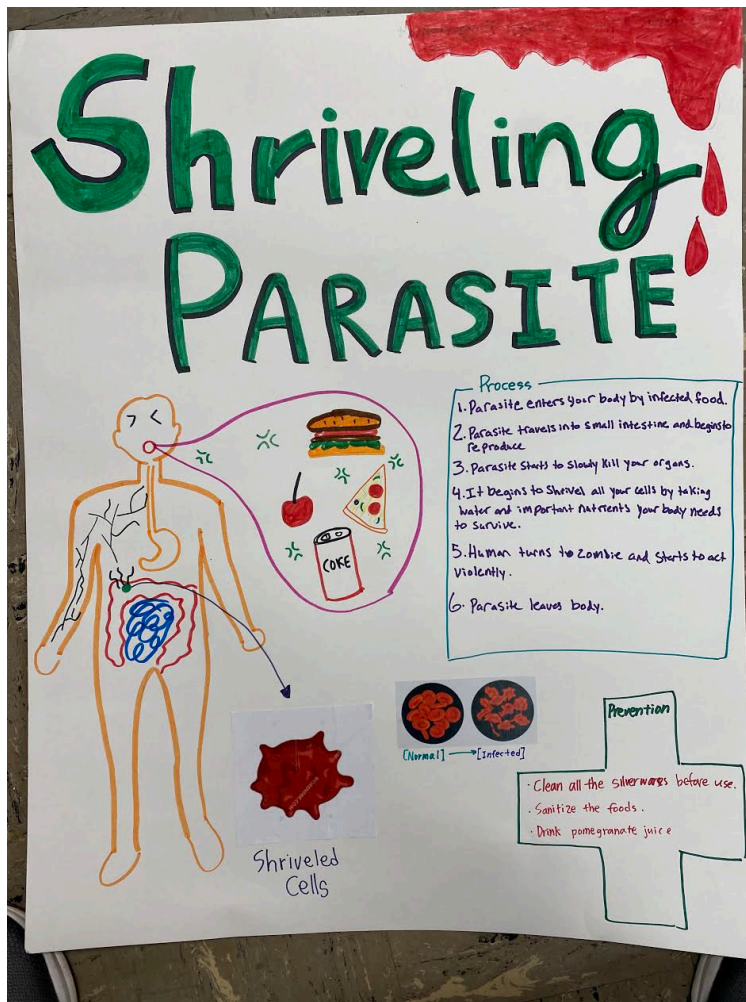 Shriveling
PARASITE
Process
1. Parasite enters your body by infected food.
2. Parasite travels into small intestine and begins to
reproduce
3. Parasite starts to slowly kill your organs.
4. It begins to Shrivel all your cells by taking
water and important nutrients your body needs
to survive.
5. Human turns to Zombie and starts to act
violently.
6. Parasite leaves body.
COKE
[Normal] → [Infected]
Prevention
· Clean all the silverwares before use.
· Sanitize the foods.
· Drink pomegranate juice
Shriveled
Cells